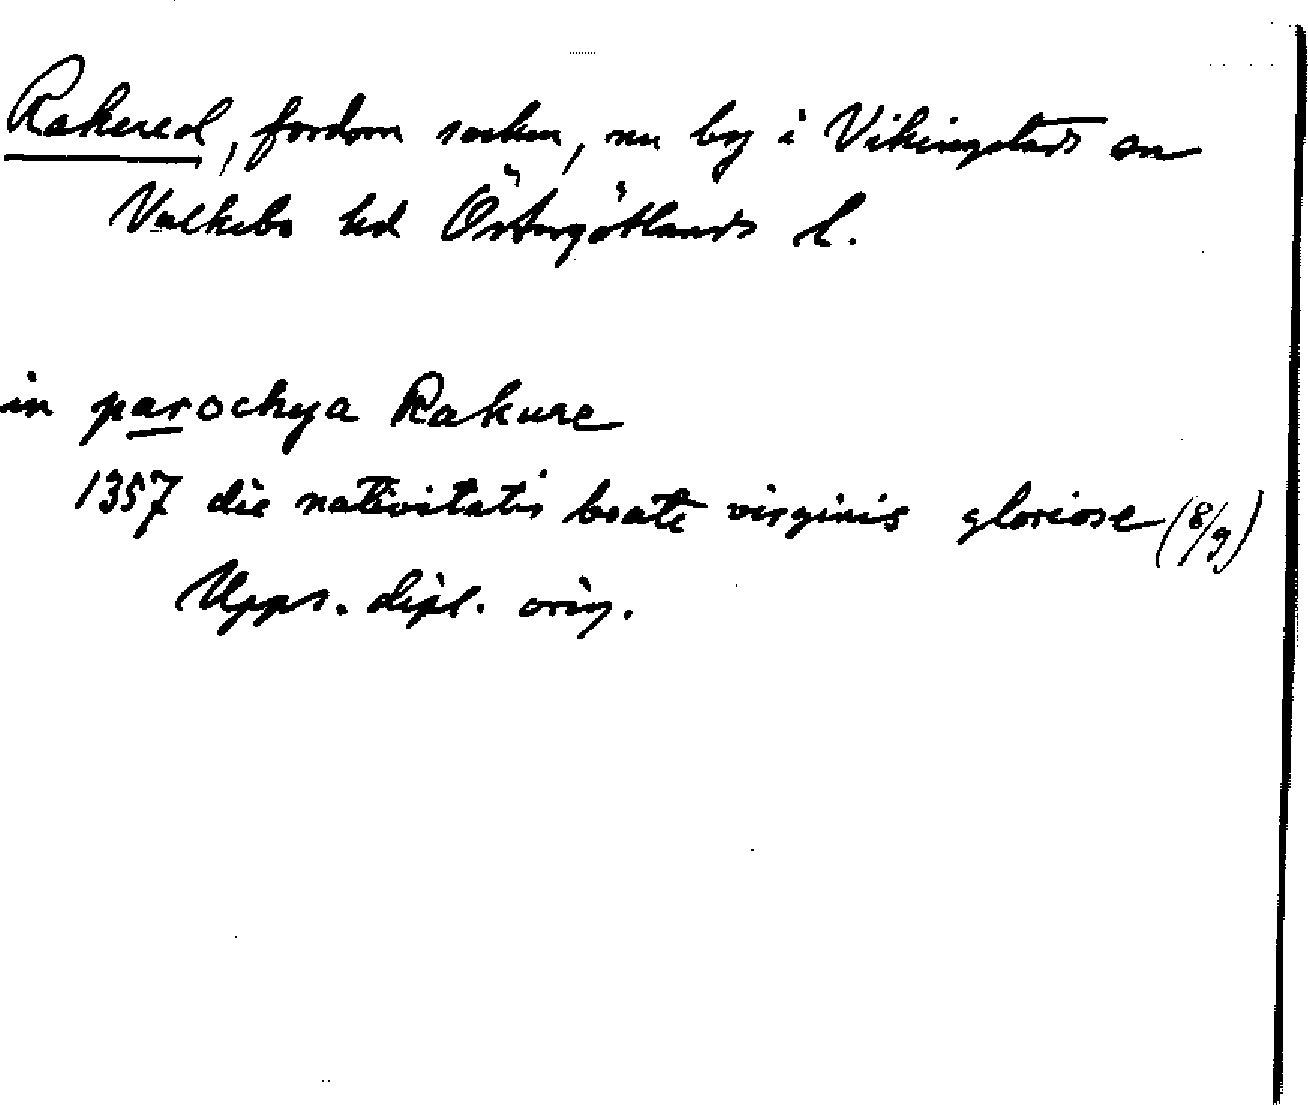 Rakered, fordom socken, nu by i Vikingstads sn
Valkebo hd Östergötlands l.
in parochya Rakure
1357 die nativitatis beate virginis gloriose (8/9)
Upps. dipl. orig.